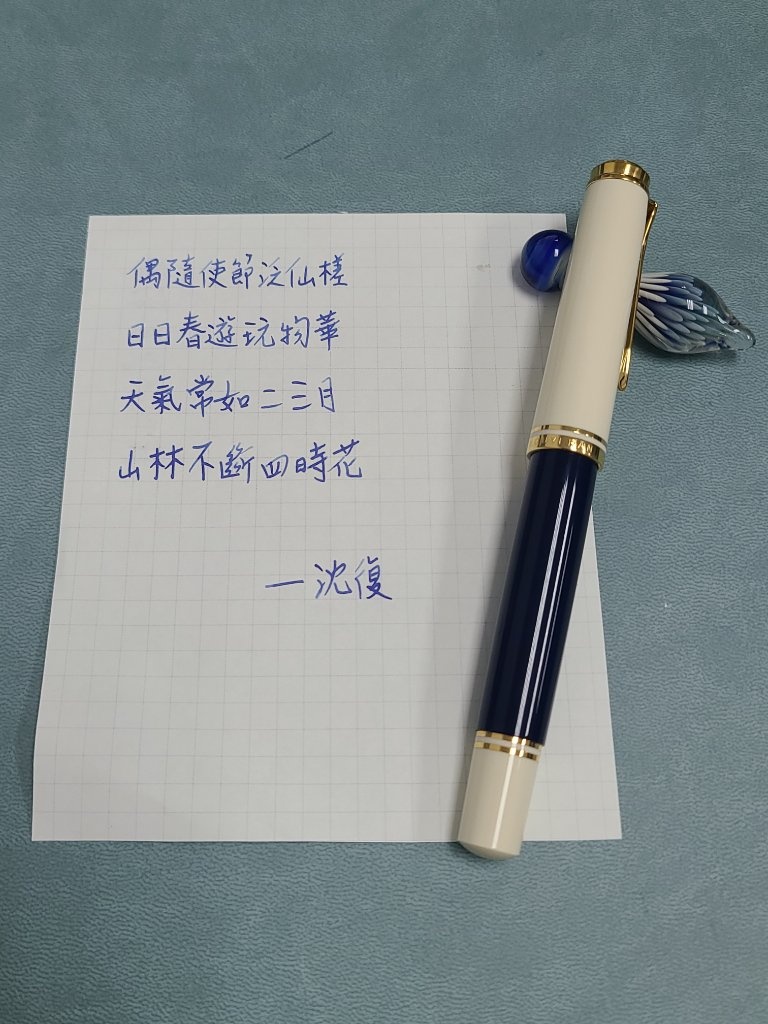 偶隨使節泛仙槎
日日春遊玩物華
天氣常如二三月
山林不斷四時花
—沈復